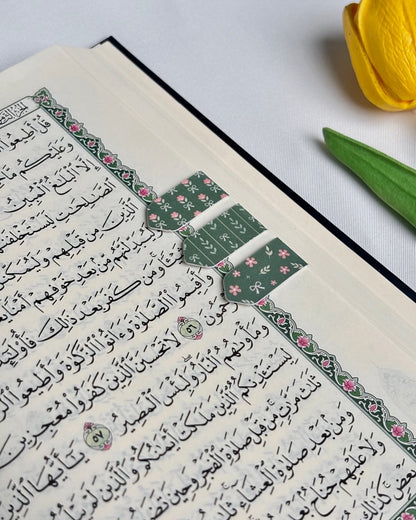 قُلْ أَطِيعُوا
عَلَيْكُم مَّا
إِلَّا الْبَلَاغُ الْمُبِينُ
الصَّالِحَاتِ لَيَسْتَخْلِفَنَّهُمْ
الَّذِينَ مِن قَبْلِهِمْ وَلَيُمَكِّنَنَّ
مِّن بَعْدِ خَوْفِهِمْ أَمْنًا
وَمَن كَفَرَ بَعْدَ ذَٰلِكَ فَأُولَٰئِكَ
وَأَقِيمُوا الصَّلَوٰةَ وَءَاتُوا الزَّكَوٰةَ وَأَطِيعُوا
تُرْحَمُونَ ٥٦ لَا تَحْسَبَنَّ الَّذِينَ كَفَرُوا مُعْجِزِينَ
وَمَأْوَىٰهُمُ النَّارُ وَلَبِئْسَ الْمَصِيرُ ٥٧ يَٰٓأَيُّهَا
لِيَسْتَـْٔذِنكُمُ الَّذِينَ مَلَكَتْ أَيْمَٰنُكُمْ وَالَّذِينَ لَمْ يَبْلُغُوا
ثَلَٰثَ مَرَّٰتٍ مِّن قَبْلِ صَلَوٰةِ الْفَجْرِ وَحِينَ تَضَعُونَ
وَمِن بَعْدِ صَلَوٰةِ الْعِشَآءِ
وَلَا عَلَيْهِمْ جُنَاحٌ بَعْدَهُنَّ
بَعْضٍ كَذَٰلِكَ